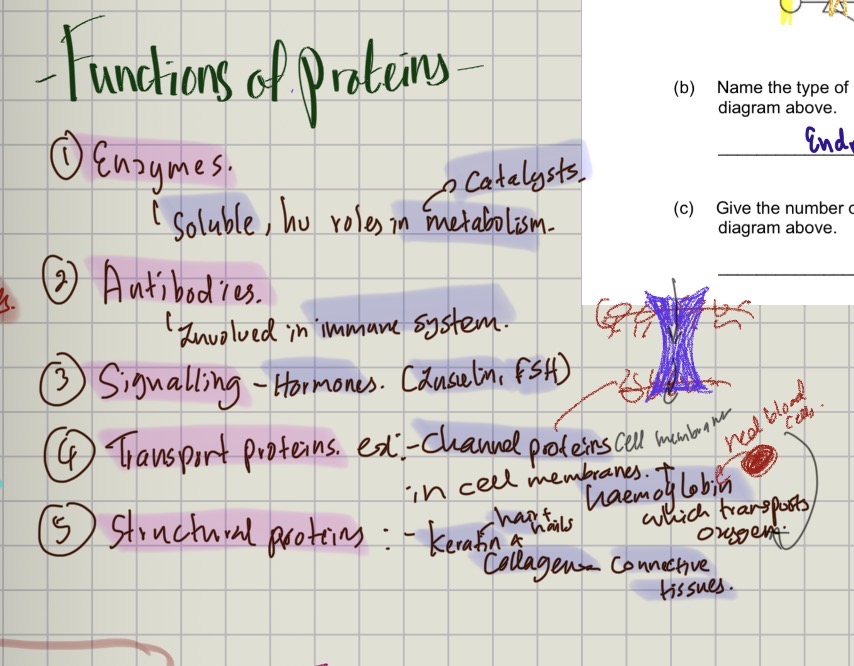 - Functions of proteins -
① Enzymes.
Catalysts.
Soluble, hv roles in metabolism.
② Antibodies.
Involved in immune system.
③ Signalling - Hormones. (Insulin, FSH)
④ Transport proteins. ex: - Channel proteins
cell membrane
in cell membranes. +
haemoglobin
which transports
oxygen.
red blood
cells.
⑤ Structural proteins : - Keratin &
hair +
nails
Collagen - Connective
tissues.
(b) Name the type of
diagram above.
(c) Give the number
diagram above.